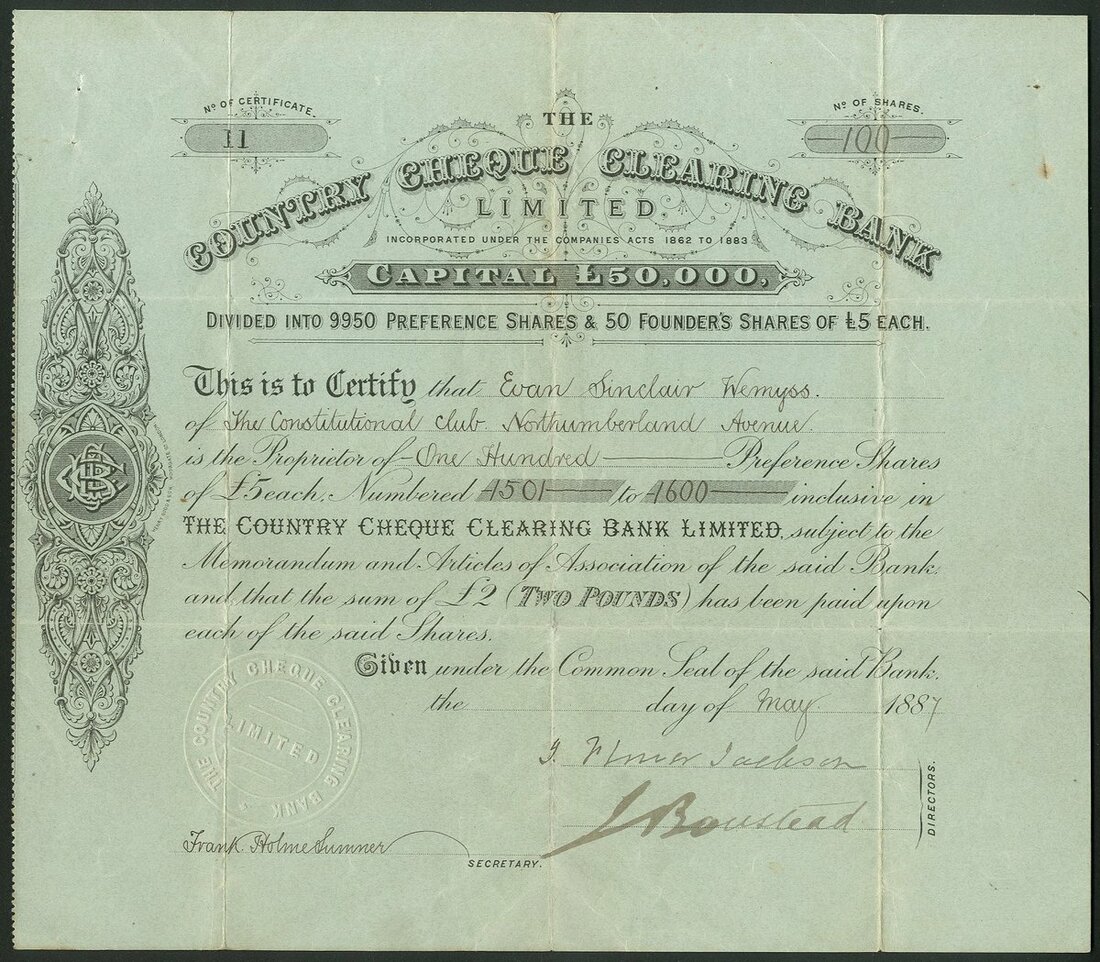 Nº OF CERTIFICATE.
11
Nº OF SHARES.
100
THE
COUNTRY CHEQUE CLEARING BANK
LIMITED.
INCORPORATED UNDER THE COMPANIES ACTS 1862 TO 1883.
CAPITAL £50,000,
DIVIDED INTO 9950 PREFERENCE SHARES & 50 FOUNDER'S SHARES OF £5 EACH.
This is to Certify that Evan Sinclair Wemyss.
of The Constitutional Club. Northumberland Avenue.
is the Proprietor of One Hundred Preference Shares
of £5 each, Numbered 1501 to 1600 inclusive in
THE COUNTRY CHEQUE CLEARING BANK LIMITED, subject to the
Memorandum and Articles of Association of the said Bank,
and that the sum of £2 (TWO POUNDS) has been paid upon
each of the said Shares.
Given under the Common Seal of the said Bank,
the day of May 1887
THE COUNTRY CHEQUE CLEARING BANK
LIMITED
Jackson
J Boustead
DIRECTORS.
Frank Holme Sumner
SECRETARY.